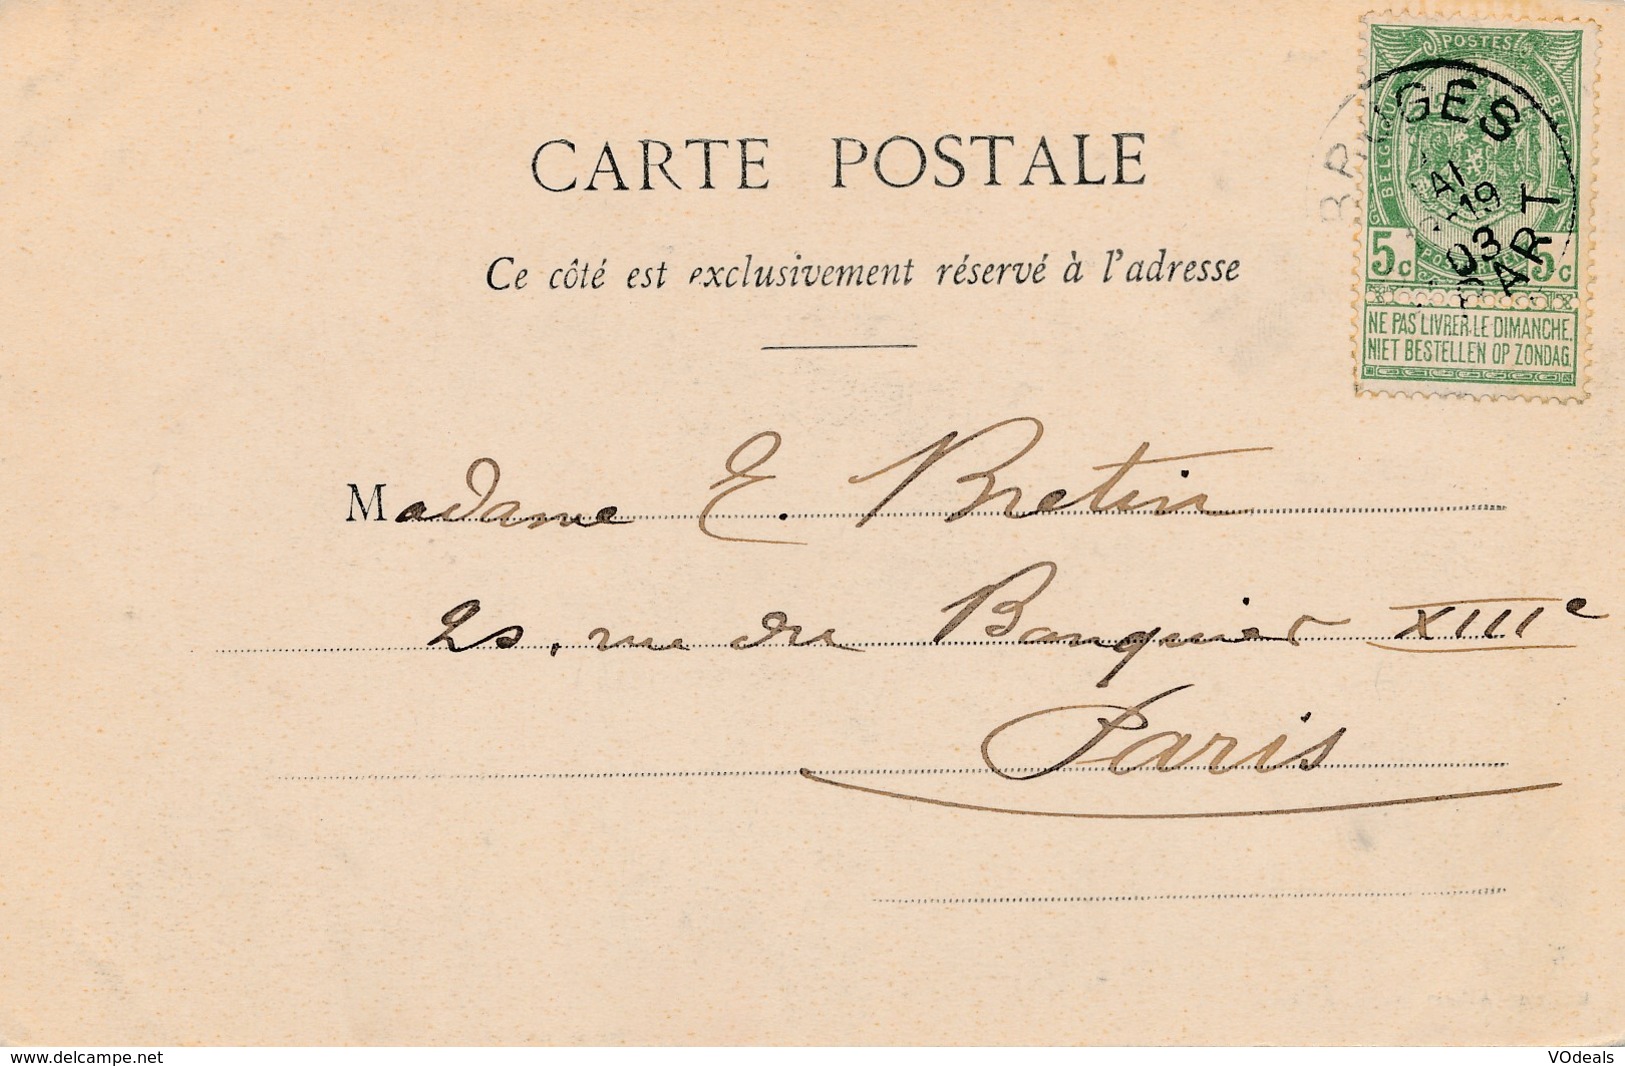 CARTE POSTALE
Ce côté est exclusivement réservé à l'adresse
POSTES
BELGIQUE
BRUGES
19
03
ART
5c 5c
NE PAS LIVRER LE DIMANCHE.
NIET BESTELLEN OP ZONDAG.
Madame E. Bretin
25, rue du Banquier XIIIe
Paris
www.delcampe.net
VOdeals